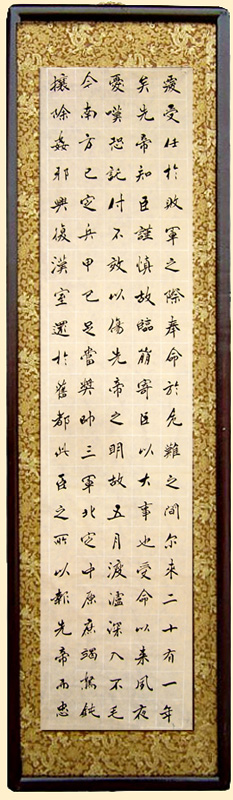 覆受任於敗軍之際奉命於危難之間尔来二十有一年
矣先帝知臣謹慎故臨崩寄臣以大事也受命以来夙夜
憂嘆恐託付不效以傷先帝之明故五月渡瀘深入不毛
今南方已定兵甲已足當獎帥三軍北定中原庶竭駑鈍
攘除姦邪興復漢室還於舊都此臣之所以報先帝而忠